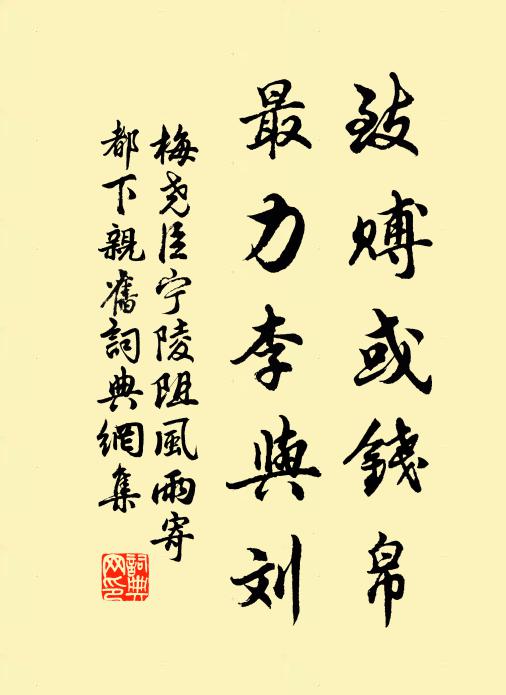 致賻或錢帛
最力李與刘
梅尧臣宁陵阻風雨寄
都下親舊詞典網集
詞典
网印